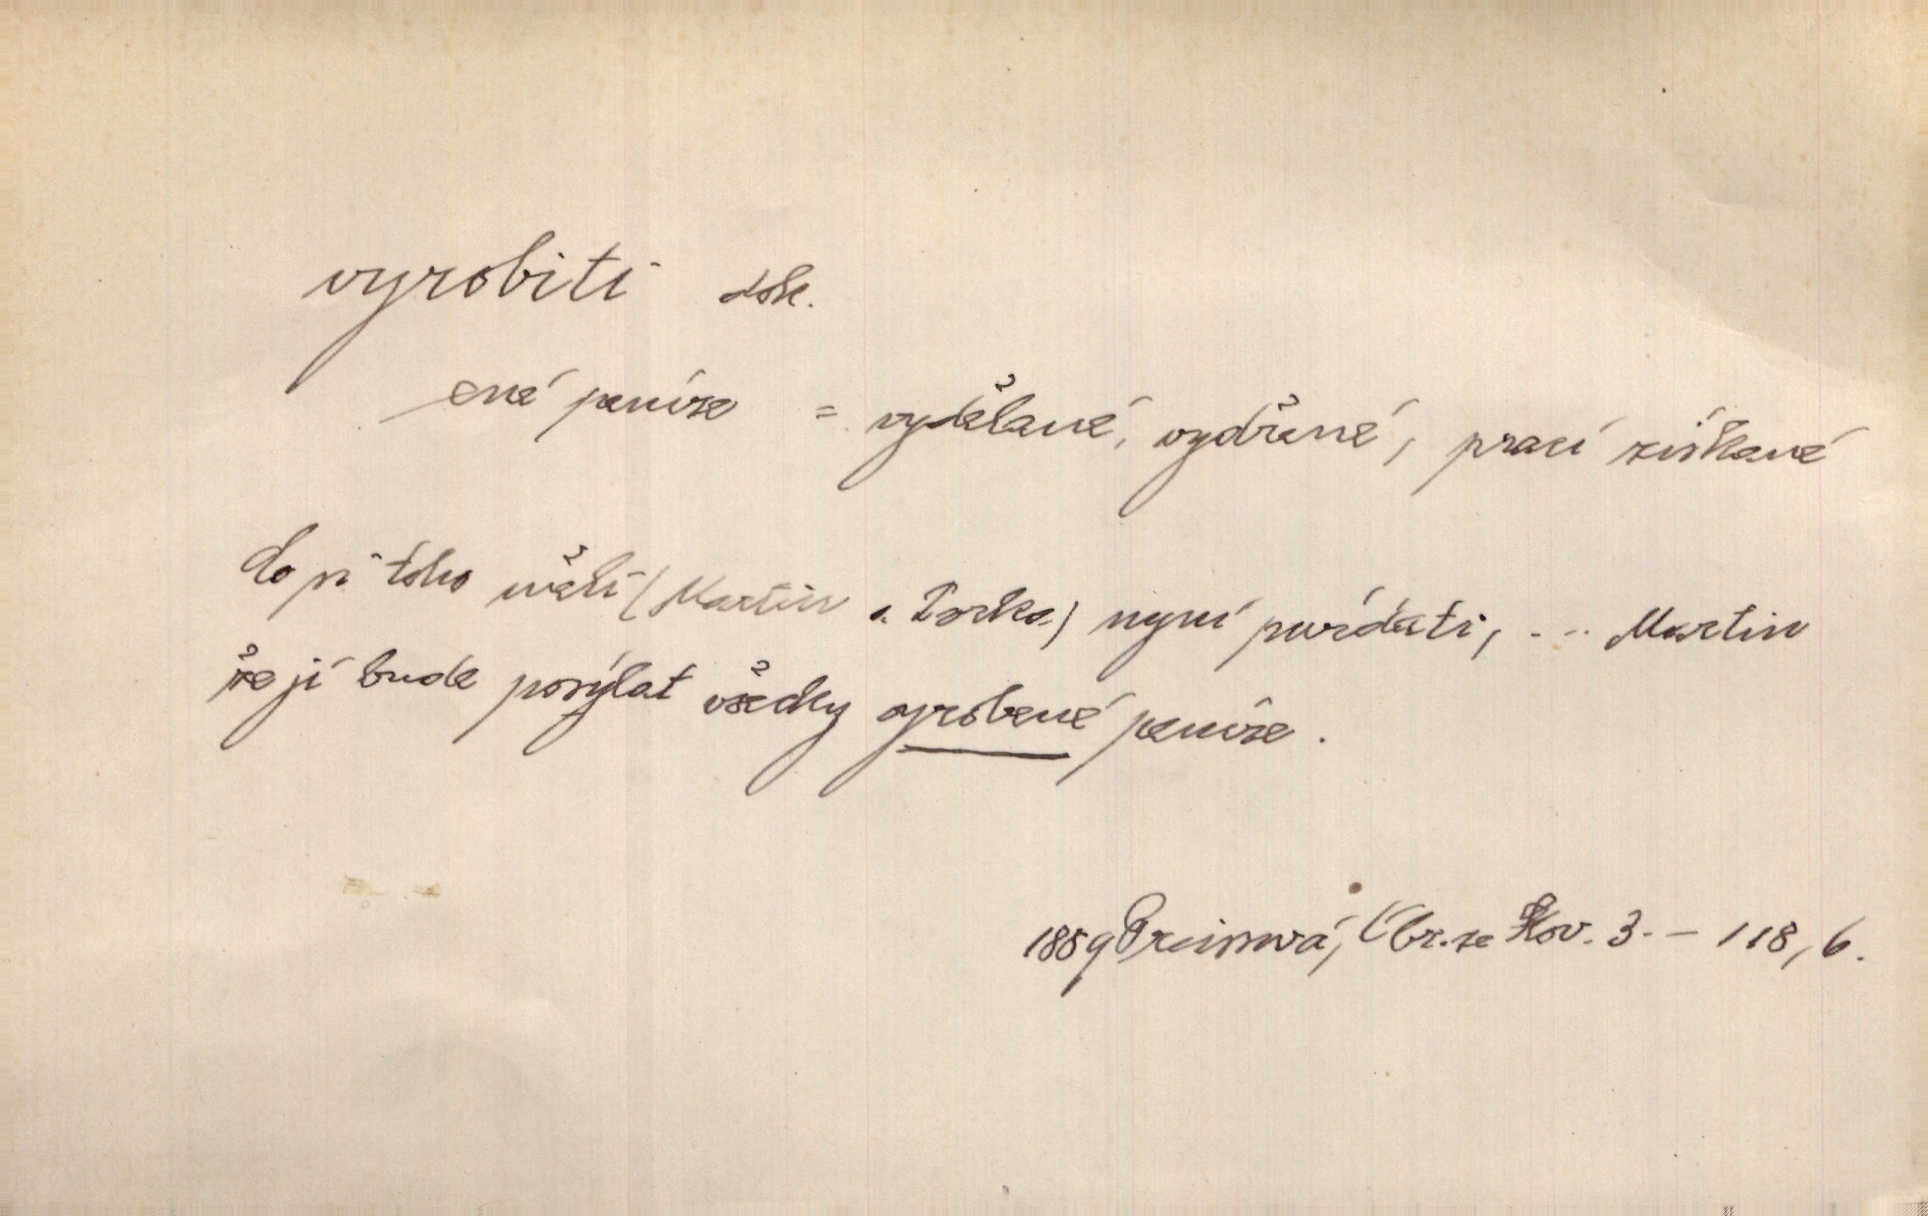 vyrobiti dok.
‒ené peníze = vydělané, vydřené, prací získané
Co si toho měli (Martin a Dorka) nyní povídati, ... Martin
že jí bude posýlat všecky vyrobené peníze.
1859 Preissová, Obr. ze Slov. 3. – 118, 6.